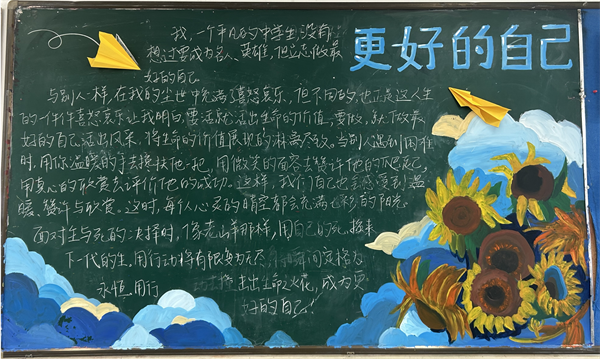 更好的自己
我,一个平凡的中学生,没有
想过要成为名人、英雄,但立志做最
好的自己
与别人一样,在我的尘世中充满了喜怒哀乐,但不同的,也正是这人生
的一件件喜怒哀乐让我明白,要活就活出生命的价值;要做,就做最
好的自己,活出风采,将生命的价值展现的淋漓尽致。当别人遇到困难
时,用你温暖的手去搀扶他一把,用微笑的面容去赞许他的
用真心的欣赏去评价他的成功。这样,我们自己也会感受到温
暖、赞许与欣赏。这时,每个人心灵的晴空都会充满七彩的阳光。
面对生与死的决择时,像老山羊那样,用自己的死,换来
下一代的生,用行动将有限变为无 瞬间定格及
永恒,用行 出生命火花,成为更
好的自己!